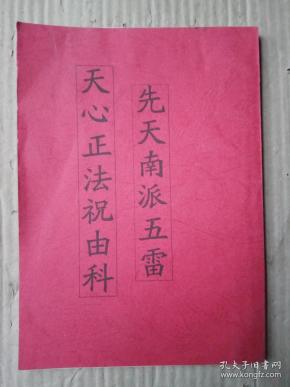 先天南派五雷
天心正法祝由科
孔夫子旧书网